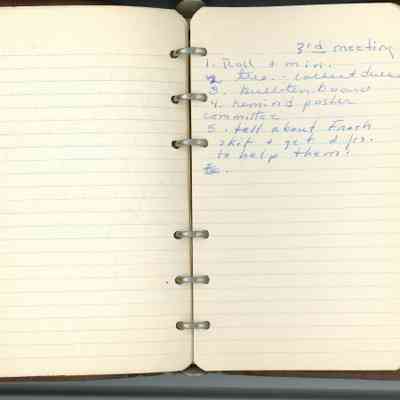 3rd meeting
1. Roll & min.
2 Tres. - collect dues
3. bulletin board
4. remind poster
committee
5. tell about Frosh
skit & get 2 jrs.
to help them!